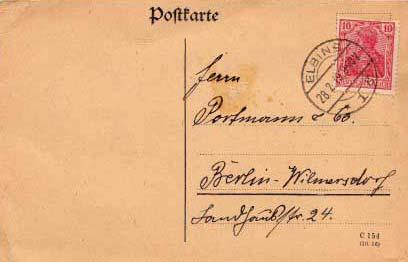 Postkarte
10 10
ELBING
28.2.
1
Herrn
Portmann & Co.
Berlin-Wilmersdorf
Landhausstr. 24.
C 154